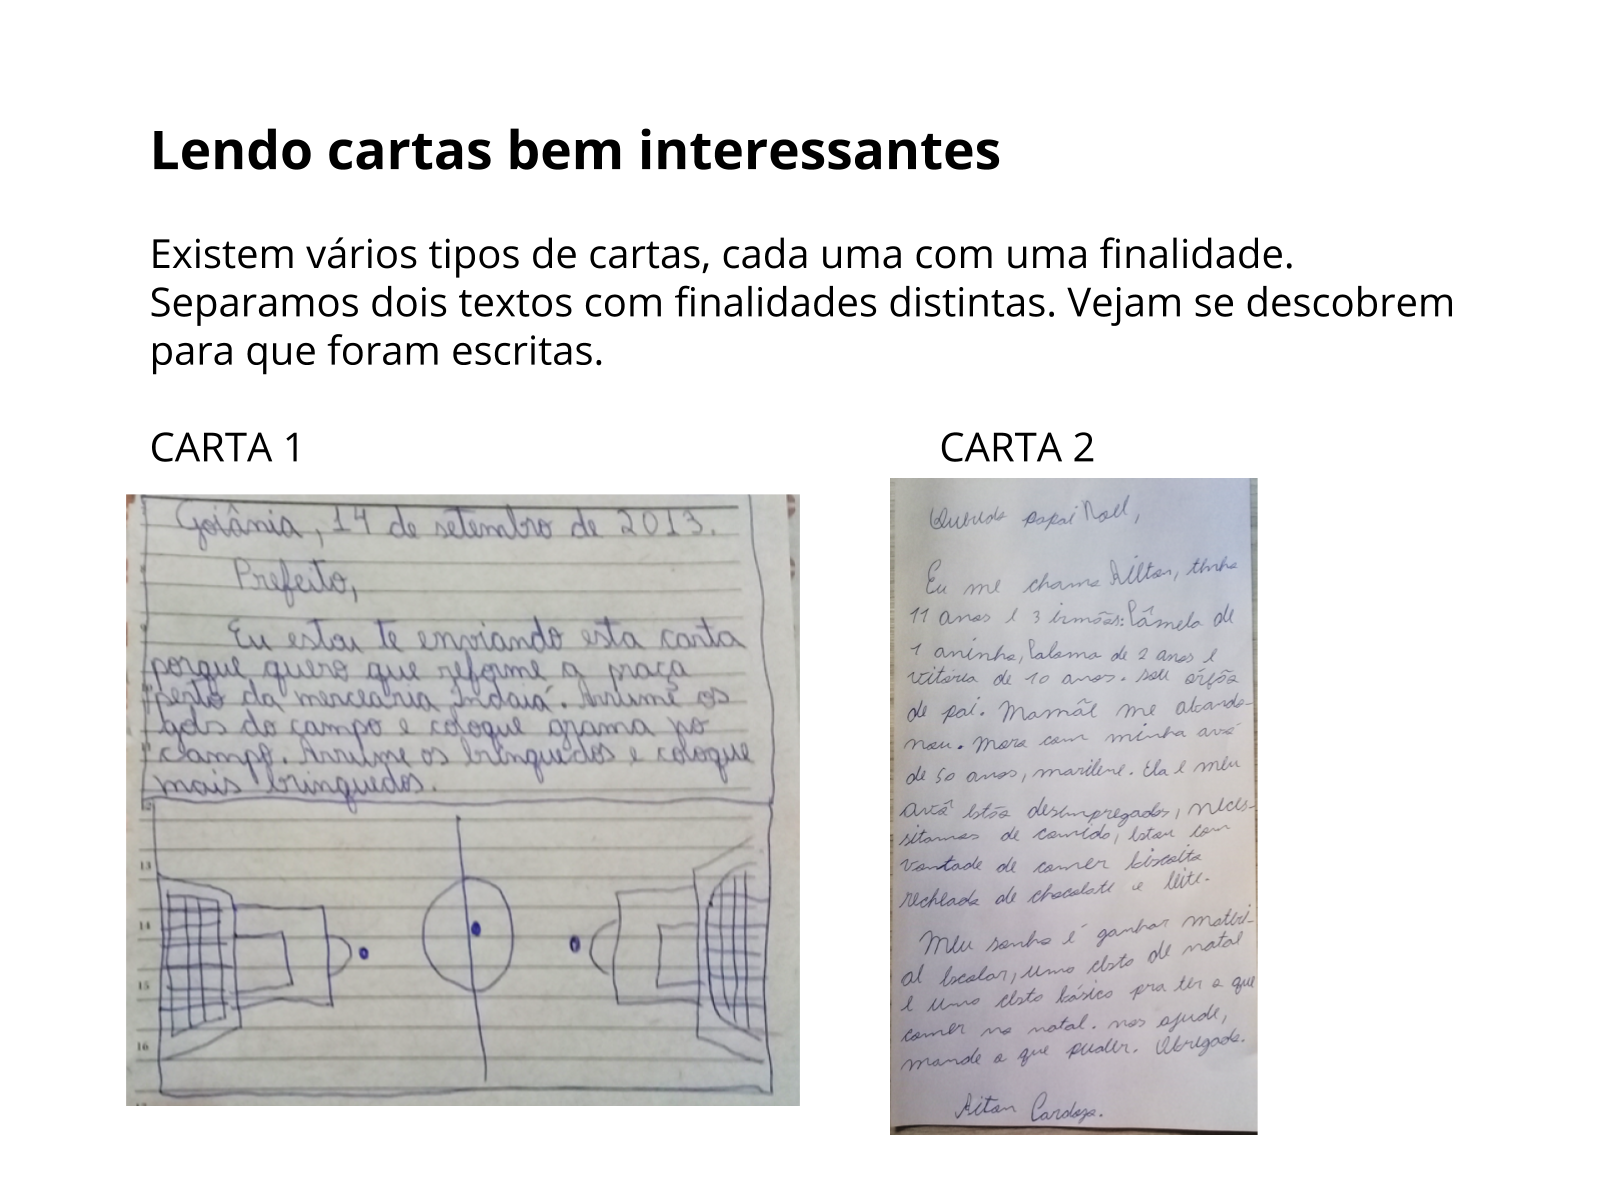 Lendo cartas bem interessantes
Existem vários tipos de cartas, cada uma com uma finalidade.
Separamos dois textos com finalidades distintas. Vejam se descobrem
para que foram escritas.
CARTA 1
Goiânia, 14 de setembro de 2013.
Prefeito,
Eu estou te enviando esta carta
porque quero que reforme a praça
perto da mercearia Indaiá. Arrume os
gols do campo e coloque grama no
campo. Arrume os brinquedos e coloque
mais brinquedos.
13
14
15
16
CARTA 2
Querido papai Noel,
Eu me chamo Ailton, tenho
11 anos e 3 irmãos: Pâmela de
1 aninho, Paloma de 2 anos e
vitória de 10 anos. sou órfão
de pai. Mamãe me abando-
nou. Moro com minha avó
de 50 anos, marilene. Ela e meu
avô estão desempregados, neces-
sitamos de comida, estou com
vontade de comer biscoito
recheado de chocolate e leite.
Meu sonho é ganhar materi-
al escolar, uma cesta de natal
e uma cesta básica pra ter o que
comer no natal. nos ajude,
mande o que puder. Obrigado.
Aiton Cardozo.